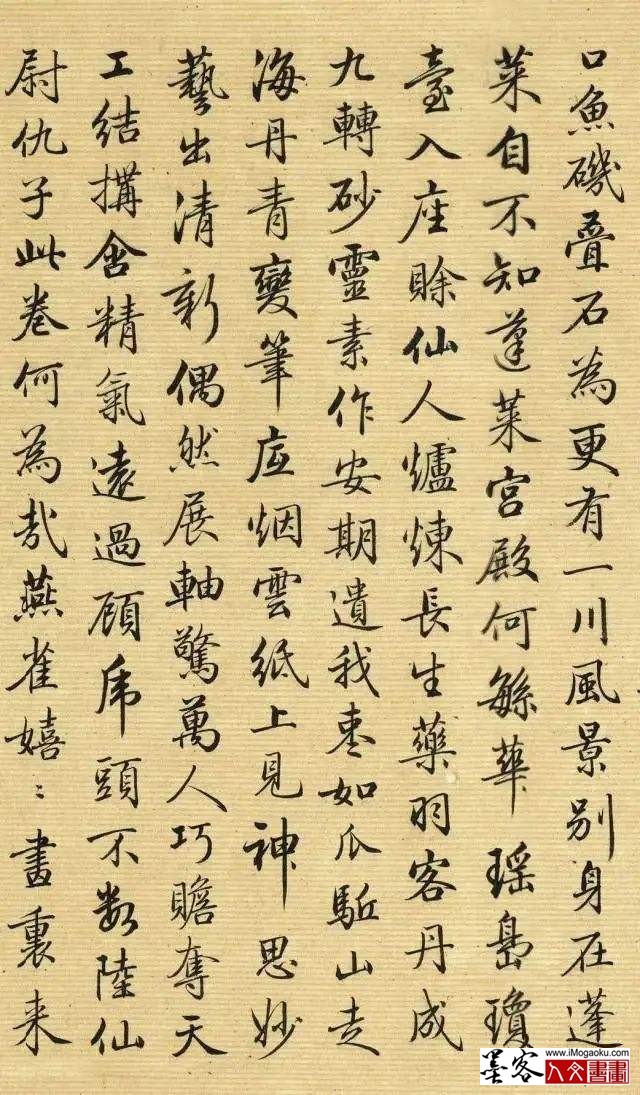 口魚磯疊石為更有一川風景別身在蓬
萊自不知蓬萊宮殿何緐華瑤島瓊
臺入座賒仙人爐煉長生藥羽客丹成
九轉砂靈素作安期遺我棗如瓜駈山走
海丹青變筆底烟雲紙上見神思妙
藝出清新偶然展軸驚萬人巧瞻奪天
工結搆含精氣遠過顧虎頭不數陸仙
尉仇子此卷何為哉燕雀嬉〻畫裏来
墨客
www.iMogaoku.com
人文書畫